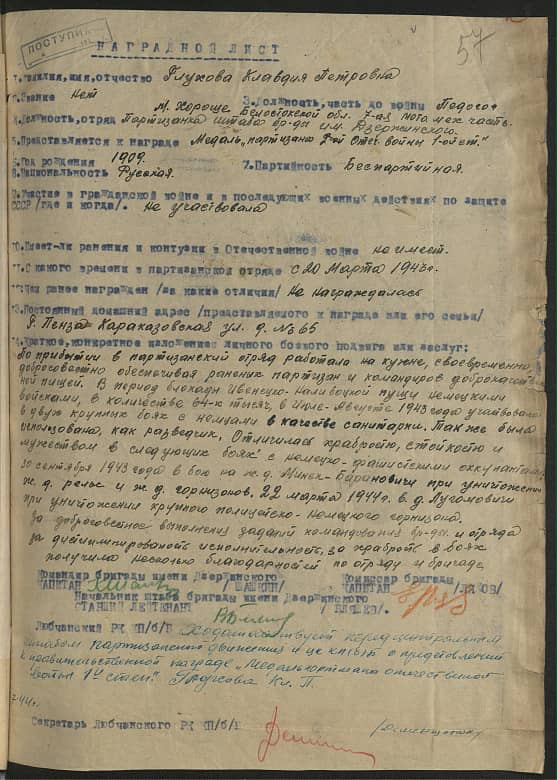 ПОСТУПИЛ
57
НАГРАДНОЙ ЛИСТ
1.Фамилия,имя,отчество Глухова Клавдия Петровна
2.Звание Нет 3.Должность,часть до войны
М. Хороще Белостокской обл. 7-ая мото мех.часть.
4.Должность,отряд Партизанка штаба бр-ды им. Дзержинского.
5.Представляется к награде Медаль,,партизану Отеч. войны 1-ой ст."
6.Год рождения 1909. 7.Партийность Беспартийная.
8.Национальность Русская.
9.Участие в гражданской войне и в последующих военных действиях по защите
СССР /где и когда/. Не участвовала
10.Имеет-ли ранения и контузии в Отечественной войне не имеет.
11.С какого времени в партизанской отряде с 20 Марта 1943г.
12.Чем ранее награжден /за какие отличия/ Не награждалась
13.Постоянный домашний адрес /представляемого к награде или его семьи/
г. Пенза Караказовская ул. д. № 65
14.Краткое,конкретное изложение личного боевого подвига или заслуг:
По прибытии в партизанский отряд работала на кухне, своевременно,
добросовестно обеспечивая раненых партизан и командиров доброкачествен
ной пищей. В период блокады Ивенецко-Налибоцкой пущи немецкими
войсками, в количестве 64-х тысяч, в Июле-Августе 1943 года участвовала
в двух крупных боях с немцами в качестве санитарки. Также была
использована, как разведчик, Отличилась храбростю, стойкостю и
мужеством в следующих боях с немецко-фашистскими оккупантами
30 сентября 1943 года в бою на ж.д. Минск-Барановичи при уничтожении
ж.д. рельс и ж.д. горнизонов, 22 марта 1944г. в д. Лугомовичи
при уничтожении крупного полицейско-немецкого горнизона.
За добросовестное выполнения заданий командования бр-ды и отряда
за дисциплинированость исполнительность, за храбрость в боях
получила несколько благодарностей по отряду и бригаде.
Командир бригады имени Дзержинского Комиссар бригады
КАПИТАН / ШАШКИН/ КАПИТАН /ЛЯХОВ/
Начальник штаба бригады имени Дзержинского
СТАРШИЙ ЛЕЙТЕНАНТ
Любчанский РК КП/б/Б ходатайствует перед центральным
штабом партизанского движения и ЦК КП(б)Б о представлении
к правительственной награде „Медаль партизана отечественной
войны 1й степ." Глуховой Кл. П.
Секретарь Любчанского РК КП/б/Б